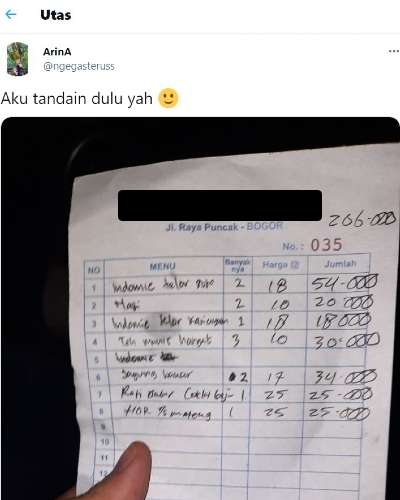 Utas
ArinA
@ngegasteruss
Aku tandain dulu yah 🙂
Jl. Raya Puncak - BOGOR
206-000
No.: 035
NO MENU Banyak nya Harga @ Jumlah
1 Indomie telor 2 18 54-000
2 Nasi 2 10 20-000
3 Indomie telor 1 18 18000
4 Teh manis hangat 3 10 30-000
5 Indomie
6 Jagung bakar 2 17 34-000
7 Roti bakar 1 25 25-000
8 1/2 mateng 1 25 25-000
9
10
11
12